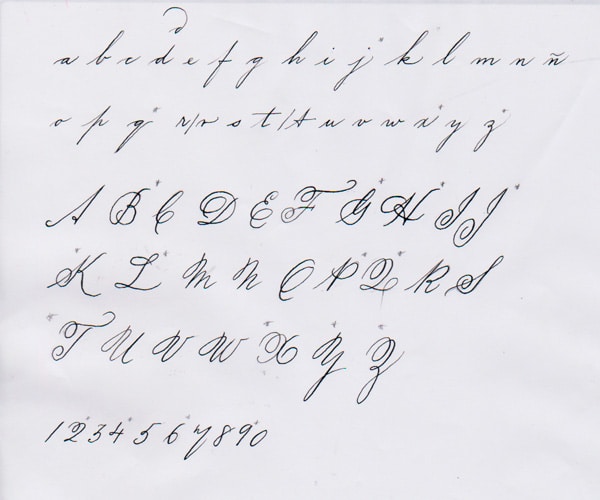 a b c d e f g h i j k l m n ñ
o p q r/r s t/t u v w x y z
A B C D E F G H I J
K L M N O P Q R S
T U V W X Y Z
1 2 3 4 5 6 7 8 9 0